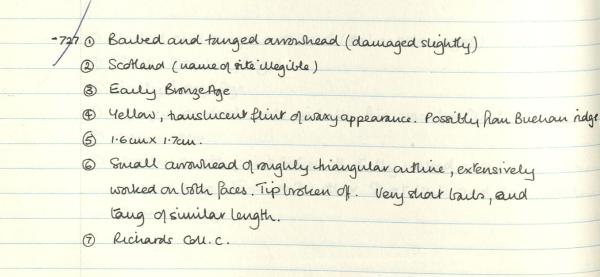 -727 ① Barbed and tanged arrowhead (damaged slightly)
② Scotland (name of site illegible)
③ Early Bronze Age
④ Yellow, translucent flint of waxy appearance. Possibly from Buchan ridge
⑤ 1.6cm x 1.7cm.
⑥ Small arrowhead of roughly triangular outline, extensively
worked on both faces. Tip broken off. Very short barbs, and
tang of similar length.
⑦ Richards Coll. C.